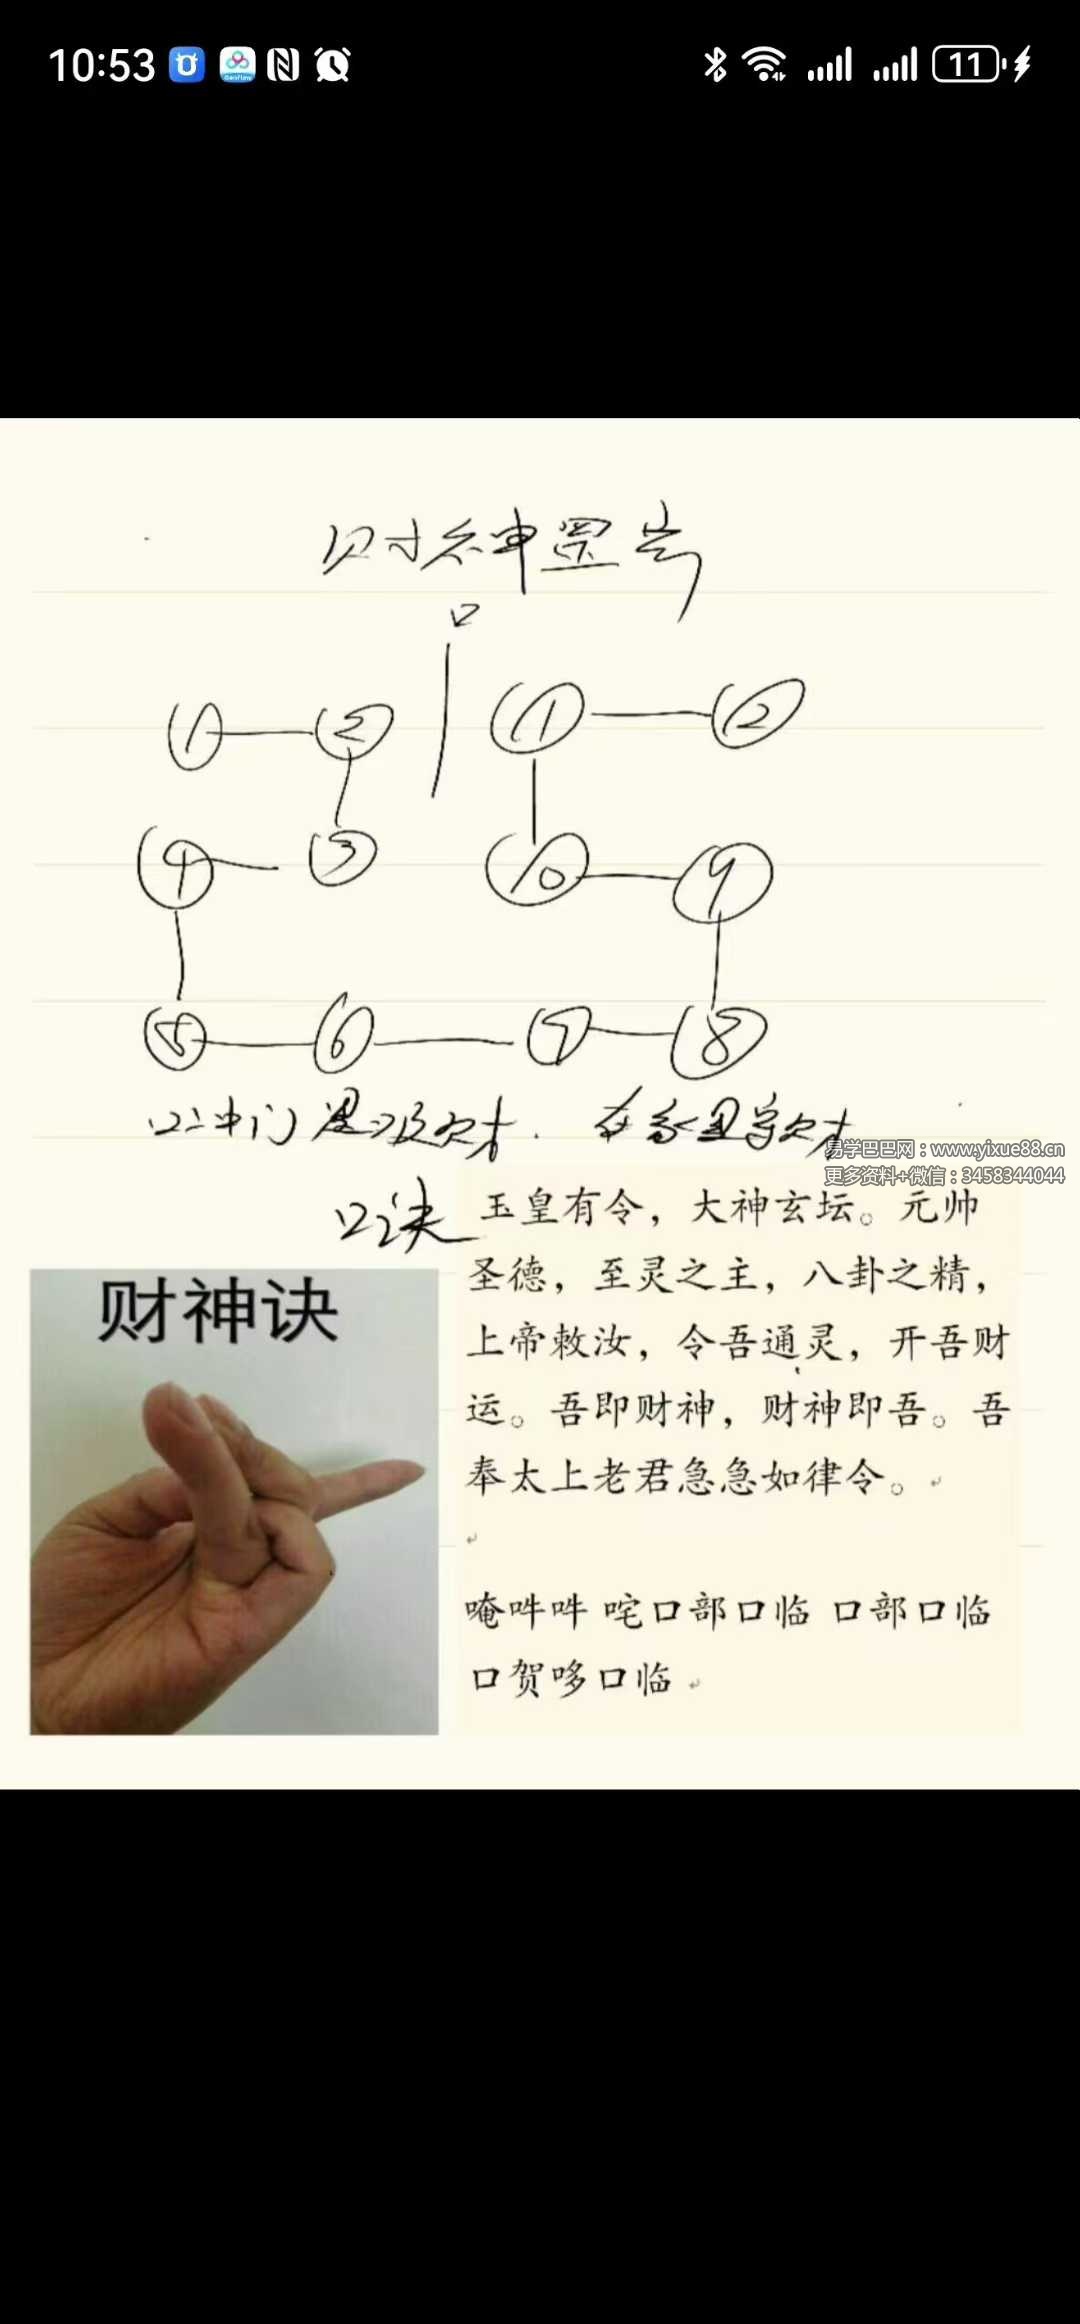 10:53
11
财神罡步
口
① ② ① ②
④ ③ ⑩ ⑨
⑤ ⑥ ⑦ ⑧
易学巴巴网：www.yixue88.cn
更多资料+微信：3458344044
口诀
玉皇有令，大神玄坛。元帅
圣德，至灵之主，八卦之精，
上帝敕汝，令吾通灵，开吾财
运。吾即财神，财神即吾。吾
奉太上老君急急如律令。
唵吽吽 咤口部口临 口部口临
口贺哆口临
财神诀